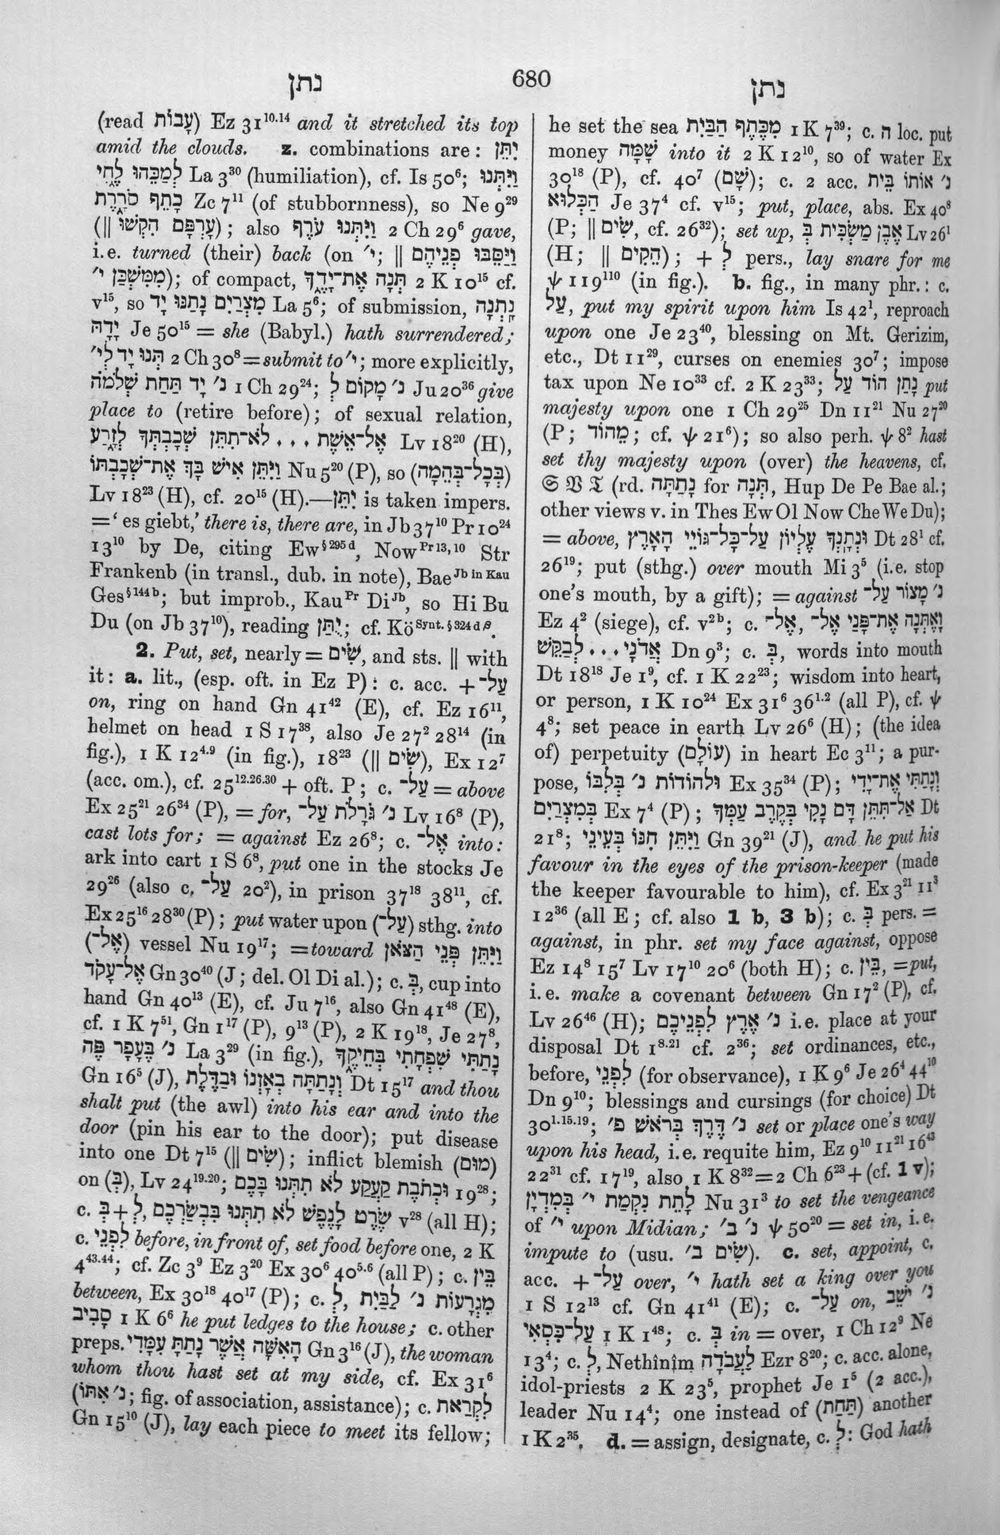 נתן 680 נתן
(read עָבוֹת) Ez 31¹⁰·¹⁴ and it stretched its top
amid the clouds. z. combinations are: יִתֵּן
לְמַכֵּהוּ לֶחִי La 3³⁰ (humiliation), cf. Is 50⁶; וַיִּתְּנוּ
כָתֵף סֹרָרֶת Zc 7¹¹ (of stubbornness), so Ne 9²⁹
(|| עָרְפָּם הִקְשׁוּ); also וַיִּתְּנוּ עֹרֶף 2 Ch 29⁶ gave,
i.e. turned (their) back (on ״י; || וַיַּסֵּבּוּ פְנֵיהֶם
מִמִּשְׁכַּן י״); of compact, תְּנָה אֶת־יָדְךָ 2 K 10¹⁵ cf.
v¹⁵, so מִצְרַיִם נָתַנּוּ יָד La 5⁶; of submission, נָֽתְנָה
יָדָהּ Je 50¹⁵ = she (Babyl.) hath surrendered;
תְּנוּ יָד לי״ 2 Ch 30⁸ = submit to י״; more explicitly,
נ׳ יָד תַּחַת שְׁלֹמֹה 1 Ch 29²⁴; נ׳ מָקוֹם לְ Ju 20³⁶ give
place to (retire before); of sexual relation,
אֶל־אֵשֶׁת . . . לֹא־תִתֵּן שְׁכָבְתְּךָ לְזָרַע Lv 18²⁰ (H),
וַיִּתֵּן אִישׁ בָּךְ אֶת־שְׁכָבְתּוֹ Nu 5²⁰ (P), so (בְּכָל־בְּהֵמָה)
Lv 18²³ (H), cf. 20¹⁵ (H).—יִתֵּן is taken impers.
= ‘es giebt,’ there is, there are, in Jb 37¹⁰ Pr 10²⁴
13¹⁰ by De, citing Ew§²⁹⁵ᵈ, Now Pr 13, 10 Str
Frankenb (in transl., dub. in note), Bae Jb in Kau
Ges§¹⁴⁴ᵇ; but improb., Kau Pr Di Jb, so Hi Bu
Du (on Jb 37¹⁰), reading יֻתַּן; cf. Kö Synt. § 324 d β.
2. Put, set, nearly = שִׂים, and sts. || with
it: a. lit., (esp. oft. in Ez P): c. acc. + עַל־
on, ring on hand Gn 41⁴² (E), cf. Ez 16¹¹,
helmet on head 1 S 17³⁸, also Je 27² 28¹⁴ (in
fig.), 1 K 12⁴·⁹ (in fig.), 18²³ (|| שִׂים), Ex 12⁷
(acc. om.), cf. 25¹²·²⁶·³⁰ + oft. P; c. עַל־ = above
Ex 25²¹ 26³⁴ (P), = for, נ׳ גֹּרָלֹת עַל־ Lv 16⁸ (P),
cast lots for; = against Ez 26⁸; c. אֶל־ into:
ark into cart 1 S 6⁸, put one in the stocks Je
29²⁶ (also c. עַל־ 20²), in prison 37¹⁸ 38¹¹, cf.
Ex 25¹⁶ 28³⁰ (P); put water upon (עַל־) sthg. into
(אֶל־) vessel Nu 19¹⁷; = toward וַיִּתֵּן פְּנֵי הַצֹּאן
אֶל־עָקֹד Gn 30⁴⁰ (J; del. Ol Di al.); c. בְּ, cup into
hand Gn 40¹³ (E), cf. Ju 7¹⁶, also Gn 41⁴⁸ (E),
cf. 1 K 7⁵¹, Gn 1¹⁷ (P), 9¹³ (P), 2 K 19¹⁸, Je 27⁸,
נ׳ בֶּעָפָר פֶּה La 3²⁹ (in fig.), נָתַתִּי שִׁפְחָתִי בְּחֵיקֶךָ
Gn 16⁵ (J), וְנָתַתָּה בְאָזְנוֹ וּבַדֶּלֶת Dt 15¹⁷ and thou
shalt put (the awl) into his ear and into the
door (pin his ear to the door); put disease
into one Dt 7¹⁵ (|| שִׂים); inflict blemish (מוּם)
on (בְּ), Lv 24¹⁹·²⁰; וּכְתֹבֶת קַעֲקַע לֹא תִתְּנוּ בָּכֶם 19²⁸;
c. לְ + בְּ, שֶׂרֶט לָנֶפֶשׁ לֹא תִתְּנוּ בִּבְשַׂרְכֶם v²⁸ (all H);
c. לִפְנֵי before, in front of, set food before one, 2 K
4⁴³·⁴⁴; cf. Zc 3⁹ Ez 3²⁰ Ex 30⁶ 40⁵·⁶ (all P); c. בֵּין
between, Ex 30¹⁸ 40¹⁷ (P); c. לְ, מִגְרָעוֹת נ׳ לַבַּיִת
סָבִיב 1 K 6⁶ he put ledges to the house; c. other
preps. הָאִשָּׁה אֲשֶׁר נָתַתָּ עִמָּדִי Gn 3¹⁶ (J), the woman
whom thou hast set at my side, cf. Ex 31⁶
(נ׳ אִתּוֹ; fig. of association, assistance); c. לִקְרַאת
Gn 15¹⁰ (J), lay each piece to meet its fellow;
he set the sea מִכֶּתֶף הַבַּיִת 1 K 7³⁹; c. ה loc. put
money שָׁמָּה into it 2 K 12¹⁰, so of water Ex
30¹⁸ (P), cf. 40⁷ (שָׁם); c. 2 acc. נ׳ אוֹתוֹ בֵּית
הַכְּלוּא Je 37⁴ cf. v¹⁵; put, place, abs. Ex 40⁸
(P; || שִׂים, cf. 26³²); set up, אֶבֶן מַשְׂכִּית בְּ Lv 26¹
(H; || הֵקִים); + לְ pers., lay snare for me
ψ 119¹¹⁰ (in fig.). b. fig., in many phr.: c.
עַל, put my spirit upon him Is 42¹, reproach
upon one Je 23⁴⁰, blessing on Mt. Gerizim,
etc., Dt 11²⁹, curses on enemies 30⁷; impose
tax upon Ne 10³³ cf. 2 K 23³³; נָתַן הוֹד עַל put
majesty upon one 1 Ch 29²⁵ Dn 11²¹ Nu 27²⁰
(P; מֵהוֹד; cf. ψ 21⁶); so also perh. ψ 8² hast
set thy majesty upon (over) the heavens, cf.
𝔊 𝔙 𝔗 (rd. נָתַתָּה for תְּנָה, Hup De Pe Bae al.;
other views v. in Thes Ew Ol Now Che We Du);
= above, וּנְתָנְךָ עֶלְיוֹן עַל־כָּל־גּוֹיֵי הָאָרֶץ Dt 28¹ cf.
26¹⁹; put (sthg.) over mouth Mi 3⁵ (i.e. stop
one's mouth, by a gift); = against נ׳ מָצוֹר עַל־
Ez 4² (siege), cf. v²ᵇ; c. אֶל־, וָאֶתְּנָה אֶת־פָּנַי אֶל־
אֲדֹנָי . . . לְבַקֵּשׁ Dn 9³; c. בְּ, words into mouth
Dt 18¹⁸ Je 1⁹, cf. 1 K 22²³; wisdom into heart,
or person, 1 K 10²⁴ Ex 31⁶ 36¹·² (all P), cf. ψ
4⁸; set peace in earth Lv 26⁶ (H); (the idea
of) perpetuity (עוֹלָם) in heart Ec 3¹¹; a pur-
pose, וּלְהוֹרֹות נ׳ בְּלִבּוֹ Ex 35³⁴ (P); וְנָתַתִּי אֶת־יָדִי
בְּמִצְרָיִם Ex 7⁴ (P); אַל־תִּתֵּן דָּם נָקִי בְּקֶרֶב עַמְּךָ Dt
21⁸; וַיִּתֵּן חִנּוֹ בְּעֵינֵי Gn 39²¹ (J), and he put his
favour in the eyes of the prison-keeper (made
the keeper favourable to him), cf. Ex 3²¹ 11³
12³⁶ (all E; cf. also 1 b, 3 b); c. בְּ pers. =
against, in phr. set my face against, oppose
Ez 14⁸ 15⁷ Lv 17¹⁰ 20⁶ (both H); c. בֵּין, = put,
i.e. make a covenant between Gn 17² (P), cf.
Lv 26⁴⁶ (H); נ׳ אֶרֶץ לִפְנֵיכֶם i.e. place at your
disposal Dt 1⁸·²¹ cf. 2³⁶; set ordinances, etc.,
before, לִפְנֵי (for observance), 1 K 9⁶ Je 26⁴ 44¹⁰
Dn 9¹⁰; blessings and cursings (for choice) Dt
30¹·¹⁵·¹⁹; נ׳ דֶּרֶךְ בְּרֹאשׁ פ׳ set or place one's way
upon his head, i.e. requite him, Ez 9¹⁰ 11²¹ 16⁴³
22³¹ cf. 17¹⁹, also 1 K 8³² = 2 Ch 6²³ + (cf. 1 v);
לָתֵת נִקְמַת י״ בְּמִדְיָן Nu 31³ to set the vengeance
of י״ upon Midian; נ׳ ב׳ ψ 50²⁰ = set in, i.e.
impute to (usu. שִׂים ב׳). c. set, appoint, c.
acc. + עַל־ over, י״ hath set a king over you
1 S 12¹³ cf. Gn 41⁴¹ (E); c. עַל־ on, נ׳ ישֵׁב
עַל־כִּסְאִי 1 K 1⁴⁸; c. בְּ in = over, 1 Ch 12⁹ Ne
13⁴; c. לְ, Nethînîm לַעֲבֹדָה Ezr 8²⁰; c. acc. alone,
idol-priests 2 K 23⁵, prophet Je 1⁵ (2 acc.),
leader Nu 14⁴; one instead of (תַּחַת) another
1 K 2³⁵. d. = assign, designate, c. לְ: God hath